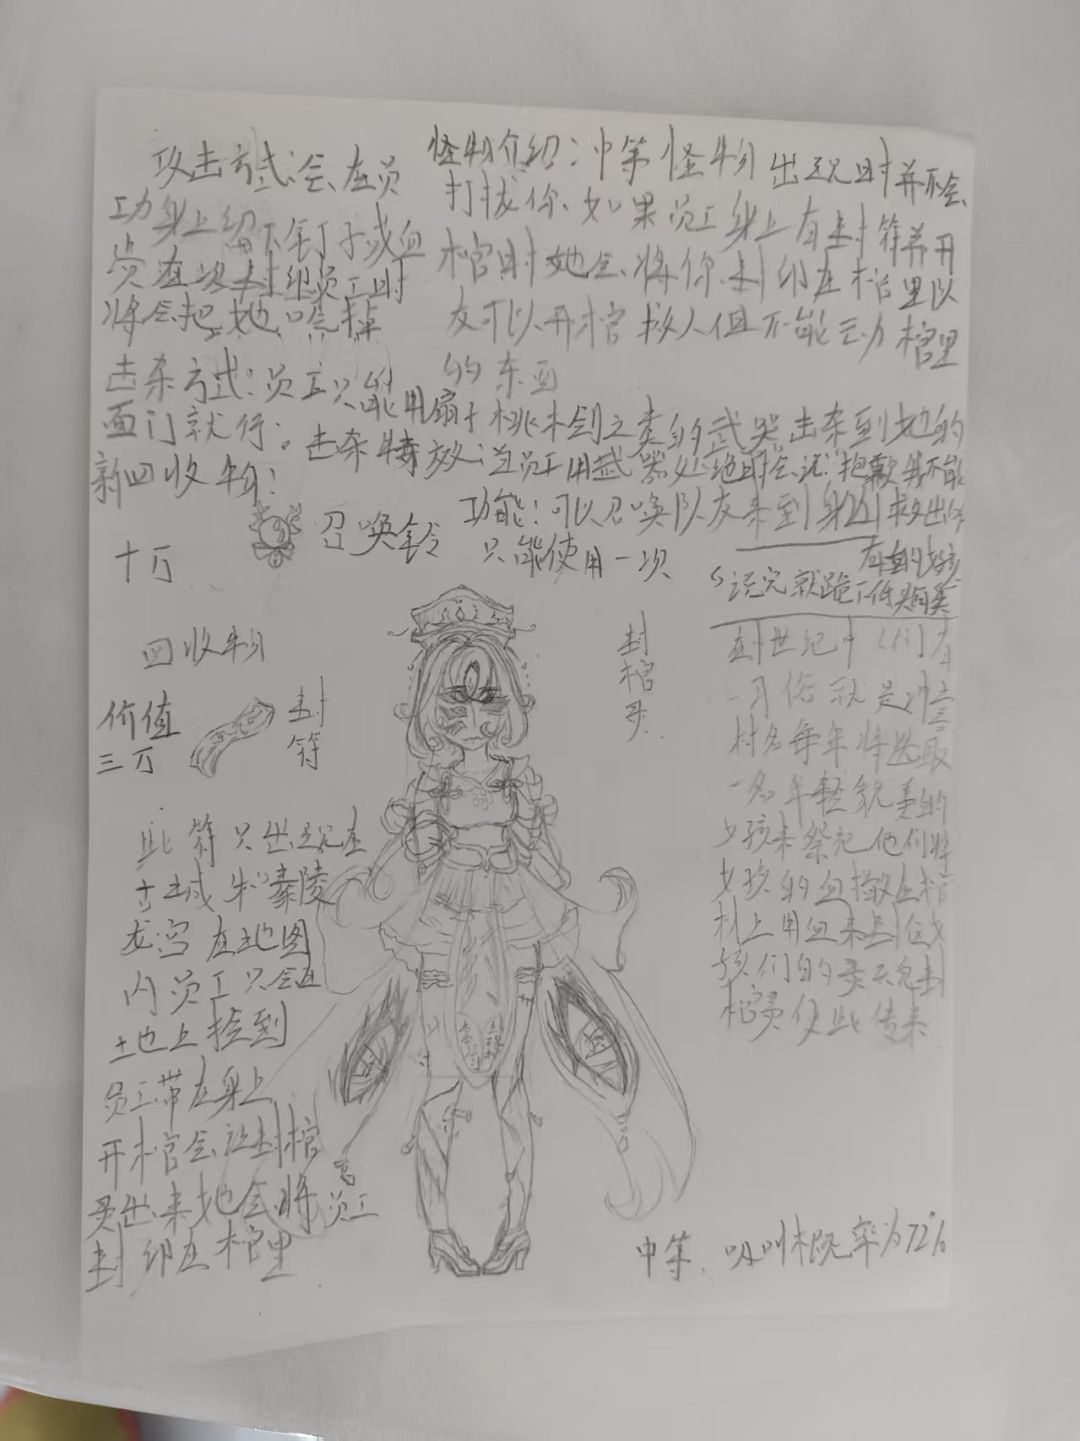 攻击方式:会在员
工身上留下钉子或血
渍在次封印员工时
将会把她吃掉
怪物介绍:中等怪物 出现时并不会
打扰你、如果员工身上有封符并开
棺时她会将你封印在棺里队
友可以开棺救人但不能动棺里
的东西
击杀方式:员工只能用扇子桃木剑之类的武器击杀到她的
面门就行。击杀特效:当员工用武器处绝时会说:抱歉我不能
救出所
有的女孩
说完就跪下低头
新回收物:
召唤铃
十万
功能:可以召唤队友来到身边
只能使用一次
回收物
价值
三万
封
符
封
棺
灵
此符只出现在
古城 秦陵
龙宫 在地图
内员工只会在
土地上捡到
员工带在身上
开棺会让封棺
灵出来她会将员工
封印在棺里
封世纪中 人们有
一习俗就是
村名每年将选取
一名年轻貌美的
少女孩来祭祀他们将
女孩的血撒在棺
材上用血来封住女
孩们的灵
棺灵 便此传来
中等. 吸叫概率为72%